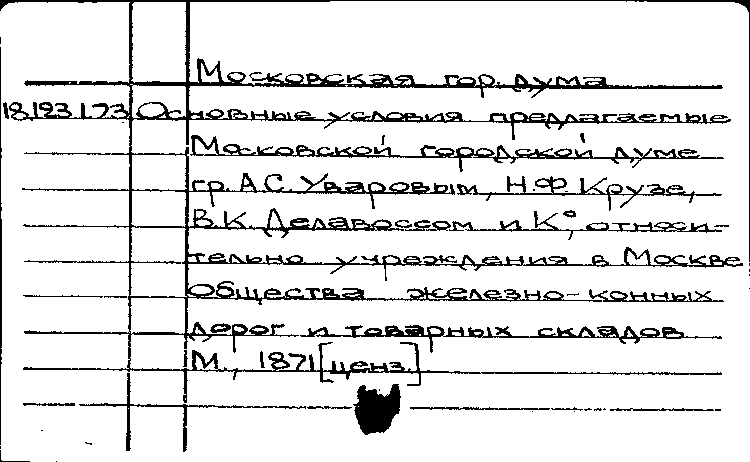 Московская гор. дума
18.123.1.73 Основные условия предлагаемые
Московской городской думе
гр. А.С. Уваровым, Н.Ф. Крузе,
В.К. Делавоссом и К°, относи-
тельно учреждения в Москве
Общества железно-конных
дорог и товарных складов
М., 1871 [ценз.]